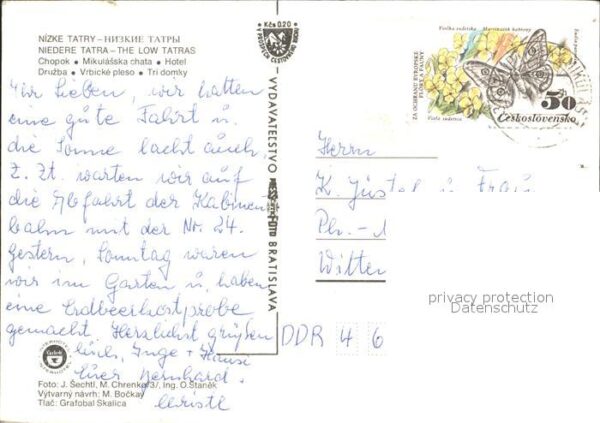 NÍZKE TATRY – НИЗКИЕ ТАТРЫ
NIEDERE TATRA – THE LOW TATRAS
Chopok • Mikulášska chata • Hotel
Družba • Vrbické pleso • Tri domky
Ihr Lieben, wir hatten
eine gute Fahrt u.
die Sonne lacht auch.
Z. Zt. warten wir auf
die Abfahrt der Kabinen
bahn mit der Nr. 24.
Gestern, Sonntag waren
wir im Garten u. haben
eine Erdbeerkostprobe
gemacht. Herzlichst grüßen
Euch, Inge + Hansi
Euer Bernhard.
Christl
Foto: J. Šechtl, M. Chrenko/3/, Ing. O. Staněk
Výtvarný návrh: M. Bočkay
Tlač: Grafobal Skalica
Kčs 0,20
VYDAVATEĽSTVO
BRATISLAVA
Vieľka sudetska
ZA OCHRANU EVROPSKE
FLORY A FAUNY
Viola sudetica
50
Československo
Herrn
K. Jüstel u. Frau
Ph.-
Witten
privacy protection
Datenschutz
DDR 4 6